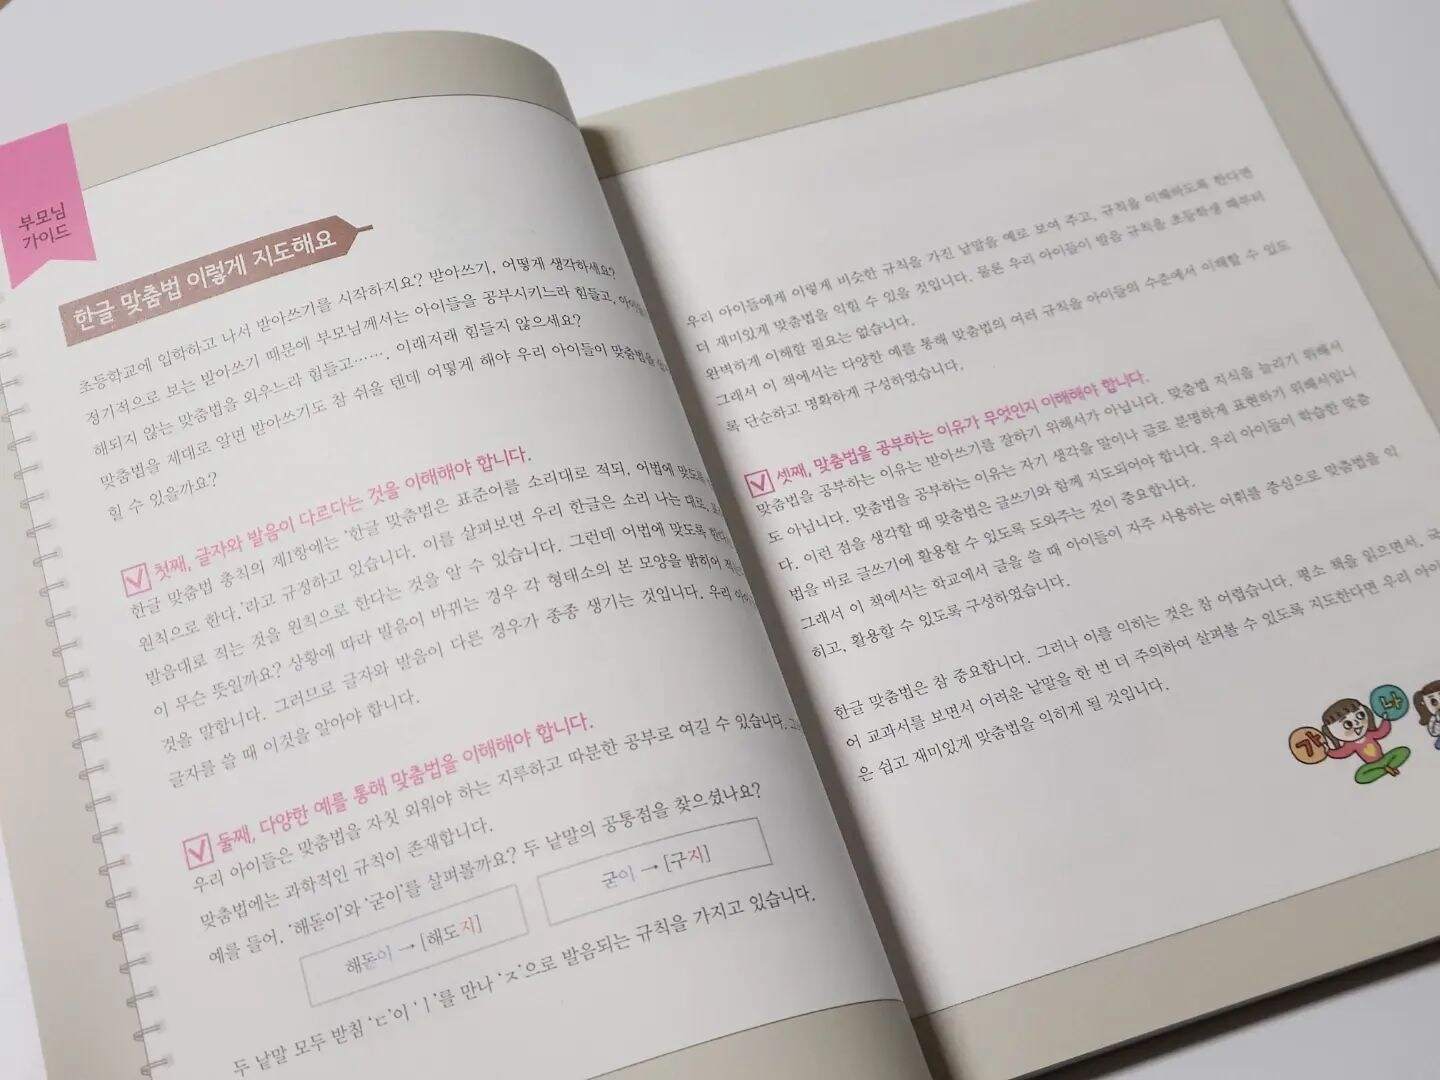 부모님
가이드
한글 맞춤법 이렇게 지도해요
초등학교에 입학하고 나서 받아쓰기를 시작하지요? 받아쓰기, 어떻게 생각하세요?
정기적으로 보는 받아쓰기 때문에 부모님께서는 아이들을 공부시키느라 힘들고,
해되지 않는 맞춤법을 외우느라 힘들고……. 이래저래 힘들지 않으세요?
맞춤법을 제대로 알면 받아쓰기도 참 쉬울 텐데 어떻게 해야 우리 아이들이 맞춤법을
힐 수 있을까요?
첫째, 글자와 발음이 다르다는 것을 이해해야 합니다.
한글 맞춤법 총칙의 제1항에는 '한글 맞춤법은 표준어를 소리대로 적되, 어법에 맞도록
원칙으로 한다.'라고 규정하고 있습니다. 이를 살펴보면 우리 한글은 소리 나는 대로,
발음대로 적는 것을 원칙으로 한다는 것을 알 수 있습니다. 그런데 어법에 맞도록 한다
이 무슨 뜻일까요? 상황에 따라 발음이 바뀌는 경우 각 형태소의 본 모양을 밝히어 적는
것을 말합니다. 그러므로 글자와 발음이 다른 경우가 종종 생기는 것입니다. 우리
글자를 쓸 때 이것을 알아야 합니다.
둘째, 다양한 예를 통해 맞춤법을 이해해야 합니다.
우리 아이들은 맞춤법을 자칫 외워야 하는 지루하고 따분한 공부로 여길 수 있습니다.
맞춤법에는 과학적인 규칙이 존재합니다.
예를 들어, '해돋이'와 '굳이'를 살펴볼까요? 두 낱말의 공통점을 찾으셨나요?
해돋이 → [해도지]
굳이 → [구지]
두 낱말 모두 받침 'ㄷ'이 'ㅣ'를 만나 'ㅈ'으로 발음되는 규칙을 가지고 있습니다.
우리 아이들에게 이렇게 비슷한 규칙을 가진 낱말을 예로 보여 주고, 규칙을 이해하도록 한다면
더 재미있게 맞춤법을 익힐 수 있을 것입니다. 물론 우리 아이들이 발음 규칙을 초등학생 때부터
완벽하게 이해할 필요는 없습니다.
그래서 이 책에서는 다양한 예를 통해 맞춤법의 여러 규칙을 아이들의 수준에서 이해할 수 있도
록 단순하고 명확하게 구성하였습니다.
셋째, 맞춤법을 공부하는 이유가 무엇인지 이해해야 합니다.
맞춤법을 공부하는 이유는 받아쓰기를 잘하기 위해서가 아닙니다. 맞춤법 지식을 늘리기 위해서
도 아닙니다. 맞춤법을 공부하는 이유는 자기 생각을 말이나 글로 분명하게 표현하기 위해서입니
다. 이런 점을 생각할 때 맞춤법은 글쓰기와 함께 지도되어야 합니다. 우리 아이들이 학습한 맞춤
법을 바로 글쓰기에 활용할 수 있도록 도와주는 것이 중요합니다.
그래서 이 책에서는 학교에서 글을 쓸 때 아이들이 자주 사용하는 어휘를 중심으로 맞춤법을 익
히고, 활용할 수 있도록 구성하였습니다.
한글 맞춤법은 참 중요합니다. 그러나 이를 익히는 것은 참 어렵습니다. 평소 책을 읽으면서, 국
어 교과서를 보면서 어려운 낱말을 한 번 더 주의하여 살펴볼 수 있도록 지도한다면 우리
은 쉽고 재미있게 맞춤법을 익히게 될 것입니다.
가
나